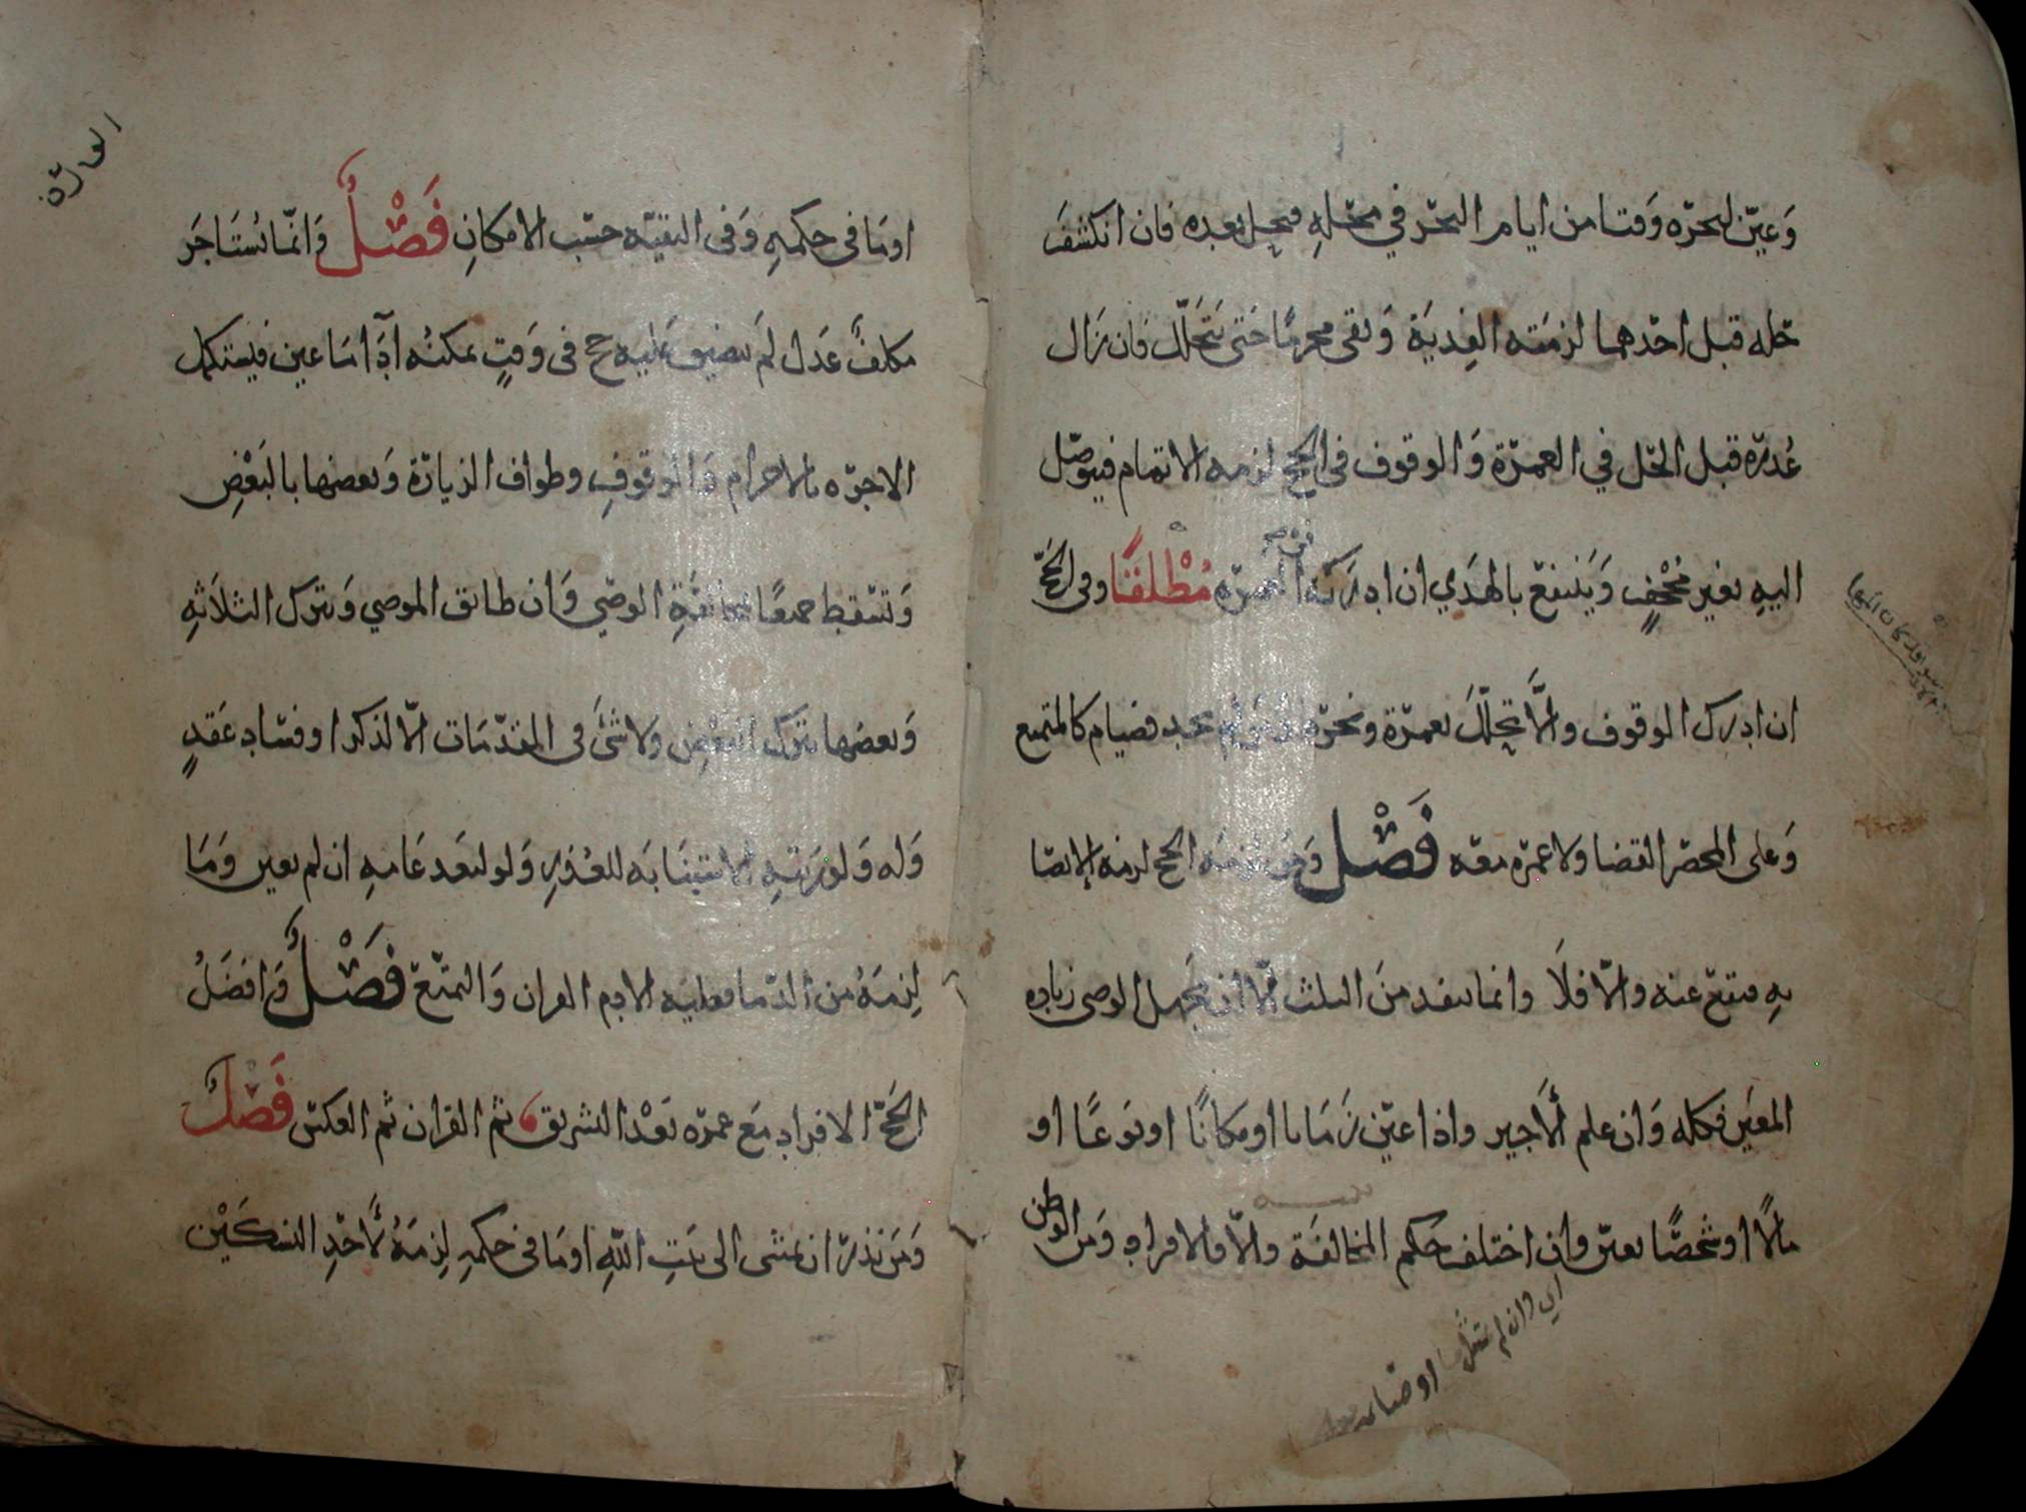 وَعيّن لنحره وَقتا من ايام النحر في محله فيحل بعده فان انكشفَ
حله قبل احدهما لزمَته الفِديَة وَبقى محرمًا حَتى يَتحَلّل فان زَال
عُذره قبل الحَل في العمرَة وَالوقوف فى الحج لزمه الاتمام فيتوصّل
اليهِ بغير مُجْحِفٍ وَيَنتفع بالهَدي ان ادرَكَ العمرَه مُطْلقًا وفى الحَجّ
ان ادرك الوقوف والّا تحَلّلَ بعمرَة ونحره ومَن لم يجد فصيام كالمتمتع
وَعلى المحصَر القضا ولا عمرَه معَه فَصْل وَمَن لزمَه الحج لزمه الايصَا
بهِ فيقع عنه والّا فلَا وانما ينفد منَ الثلث الّا ان يَجهل الوصى زيادة
المعَين فكله وَان علم الَاجير واذا عيّن زَمَانا او مكانًا او نوَعًا او
مالًا او شخصًا تعيّن وان اختلف حكم المخالفَة والّا فالافراد وَمن الوطن
اي وان لم
اومَا فى حكمهِ وَفى البقيّه حسَب الامكانِ فَصْلٌ وَانمّا يُستَاجَر
مكلفٌ عَدل لَم يتضيق عَليه حج فى وَقتٍ يمكنُه ادَآ مَا عين فيَستكمل
الاجرَه بالاحرام وَالوقوفِ وطواف الزيارَة وَبعضهَا بالبَعْضِ
وَتسْقط جميعًا بمخالفَةِ الوصّي وَان طابق الموصي وَبترك الثلَاثهِ
وَبعضهَا بترك البَعْض ولا شَئَ فى المقدّمَات الّا لذكر او فسَاد عَقدٍ
وَله وَلورَثتهِ الاستنَابَه للعُذرِ وَلو لبعَد عَامهِ ان لم يعين وَمَا
لزِمَهُ من الدّما فعليَه الا دم القران وَالتمتّع فَصْلٌ وَافضَلُ
الحَجّ الافراد مَع عمرَه بَعْد التشريق ثم القران ثم العكس فَصْلٌ
وَمَن نذرَ ان يمشى الى بَيتِ اللهِ اومَا فى حكمهِ لزِمَهُ لَاحَدِ النسكَيْن